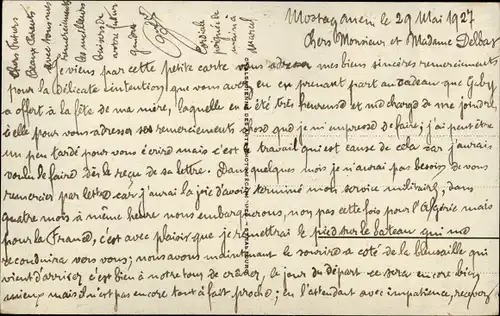 Mostaganem le 29 Mai 1927
Chers Monsieur et Madame Delbar
je viens par cette petite carte vous adresser mes bien sincères remerciements
pour la délicate intention que vous avez eu en prenant part au cadeau que Gaby
a offert à la fête de ma mère, laquelle en a été très heureuse et me charge de me joindre
à elle pour vous adresser ses remerciements ce que je m'empresse de faire; j'ai peut être
un peu tardé pour vous écrire mais c'est le travail qui est cause de cela car j'aurais
voulu le faire dès le reçu de sa lettre. Dans quelques mois je n'aurai pas besoin de vous
remercier par lettre car j'aurai la joie d'avoir terminé mon service militaire, dans
quatre mois à même heure nous embarquerons, non pas cette fois pour l'Algérie mais
pour la France, c'est avec plaisir que je remettrai le pied sur le bateau qui me
reconduira vers vous; nous avons maintenant le sourire a coté de la bleusaille qui
vient d'arriver c'est bien à notre tour de crâner, le jour du départ ce sera encore bien
mieux mais il n'est pas encore tout à fait proche; en l'attendant avec impatience, recevez
Chers Futurs
Beaux Parents
avec tous mes
remerciements
les meilleurs
baisers de
votre futur
gendre
Cordiale
poignée de
main à
Marcel